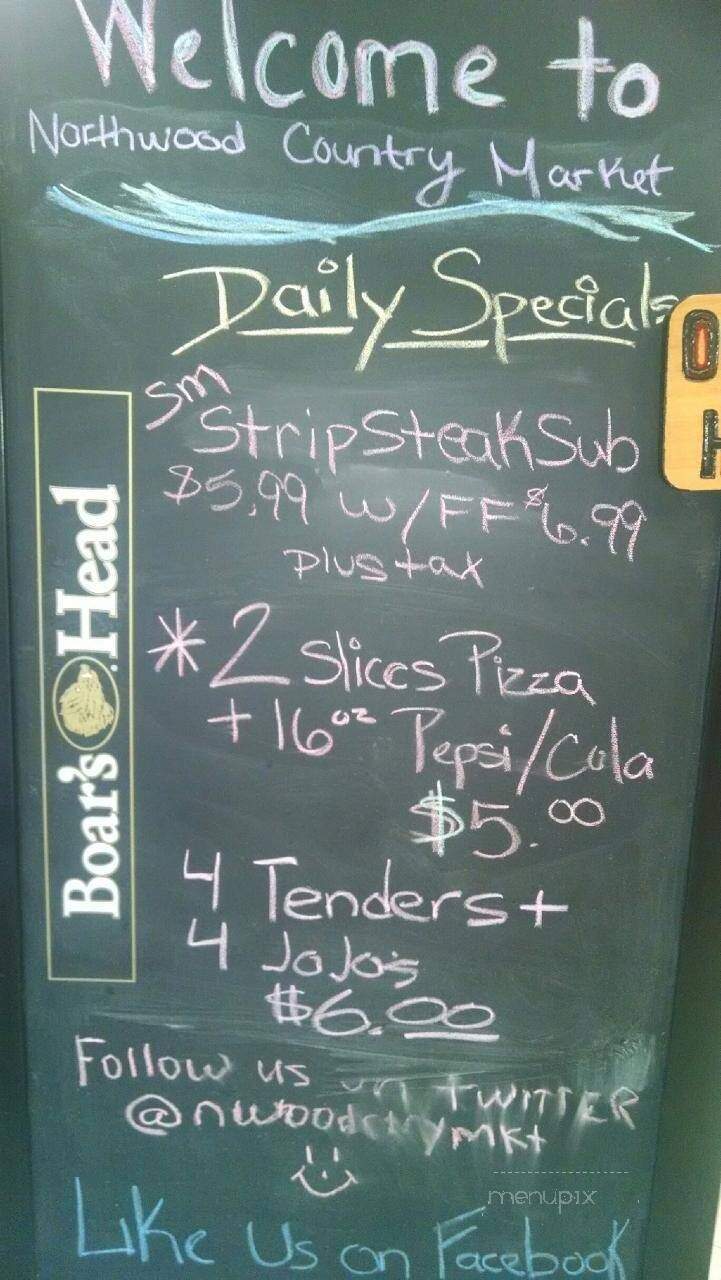 Welcome to
Northwood Country Market
Daily Specials
sm
Strip Steak Sub
$5.99 w/FF $6.99
plus tax
*2 Slices Pizza
+ 16oz Pepsi/Cola
$5.00
4 Tenders +
4 JoJo's
$6.00
Follow us on TWITTER
@nwoodctrymkt
Like Us on Facebook
Boar's Head
O
H
menupix